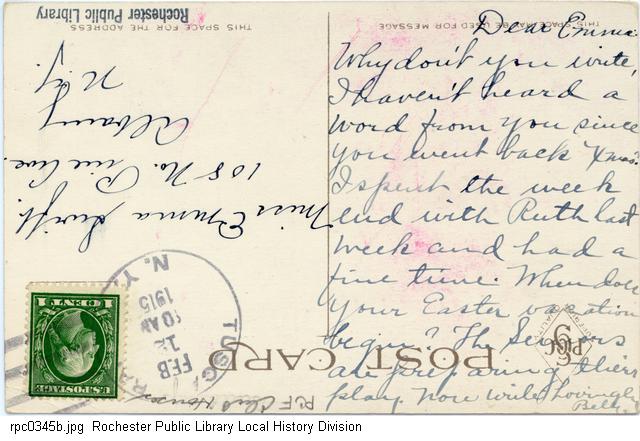 Dear Emma:
Why don't you write,
I haven't heard a
word from you since
you went back Xmas.
I spent the week
end with Ruth last
week and had a
fine time. When does
your Easter vacation
begin? The Seniors
are preparing their
play. Now write Lovingly
THIS SPACE MAY BE USED FOR MESSAGE
POST CARD
THIS SPACE FOR THE ADDRESS
Rochester Public Library
Miss Emma Swift.
108 No. Pine Ave.
Albany
N.Y.
FEB
12
10 AM
1915
N.Y.
1 CENT 1
U.S. POSTAGE
rpc0345b.jpg Rochester Public Library Local History Division